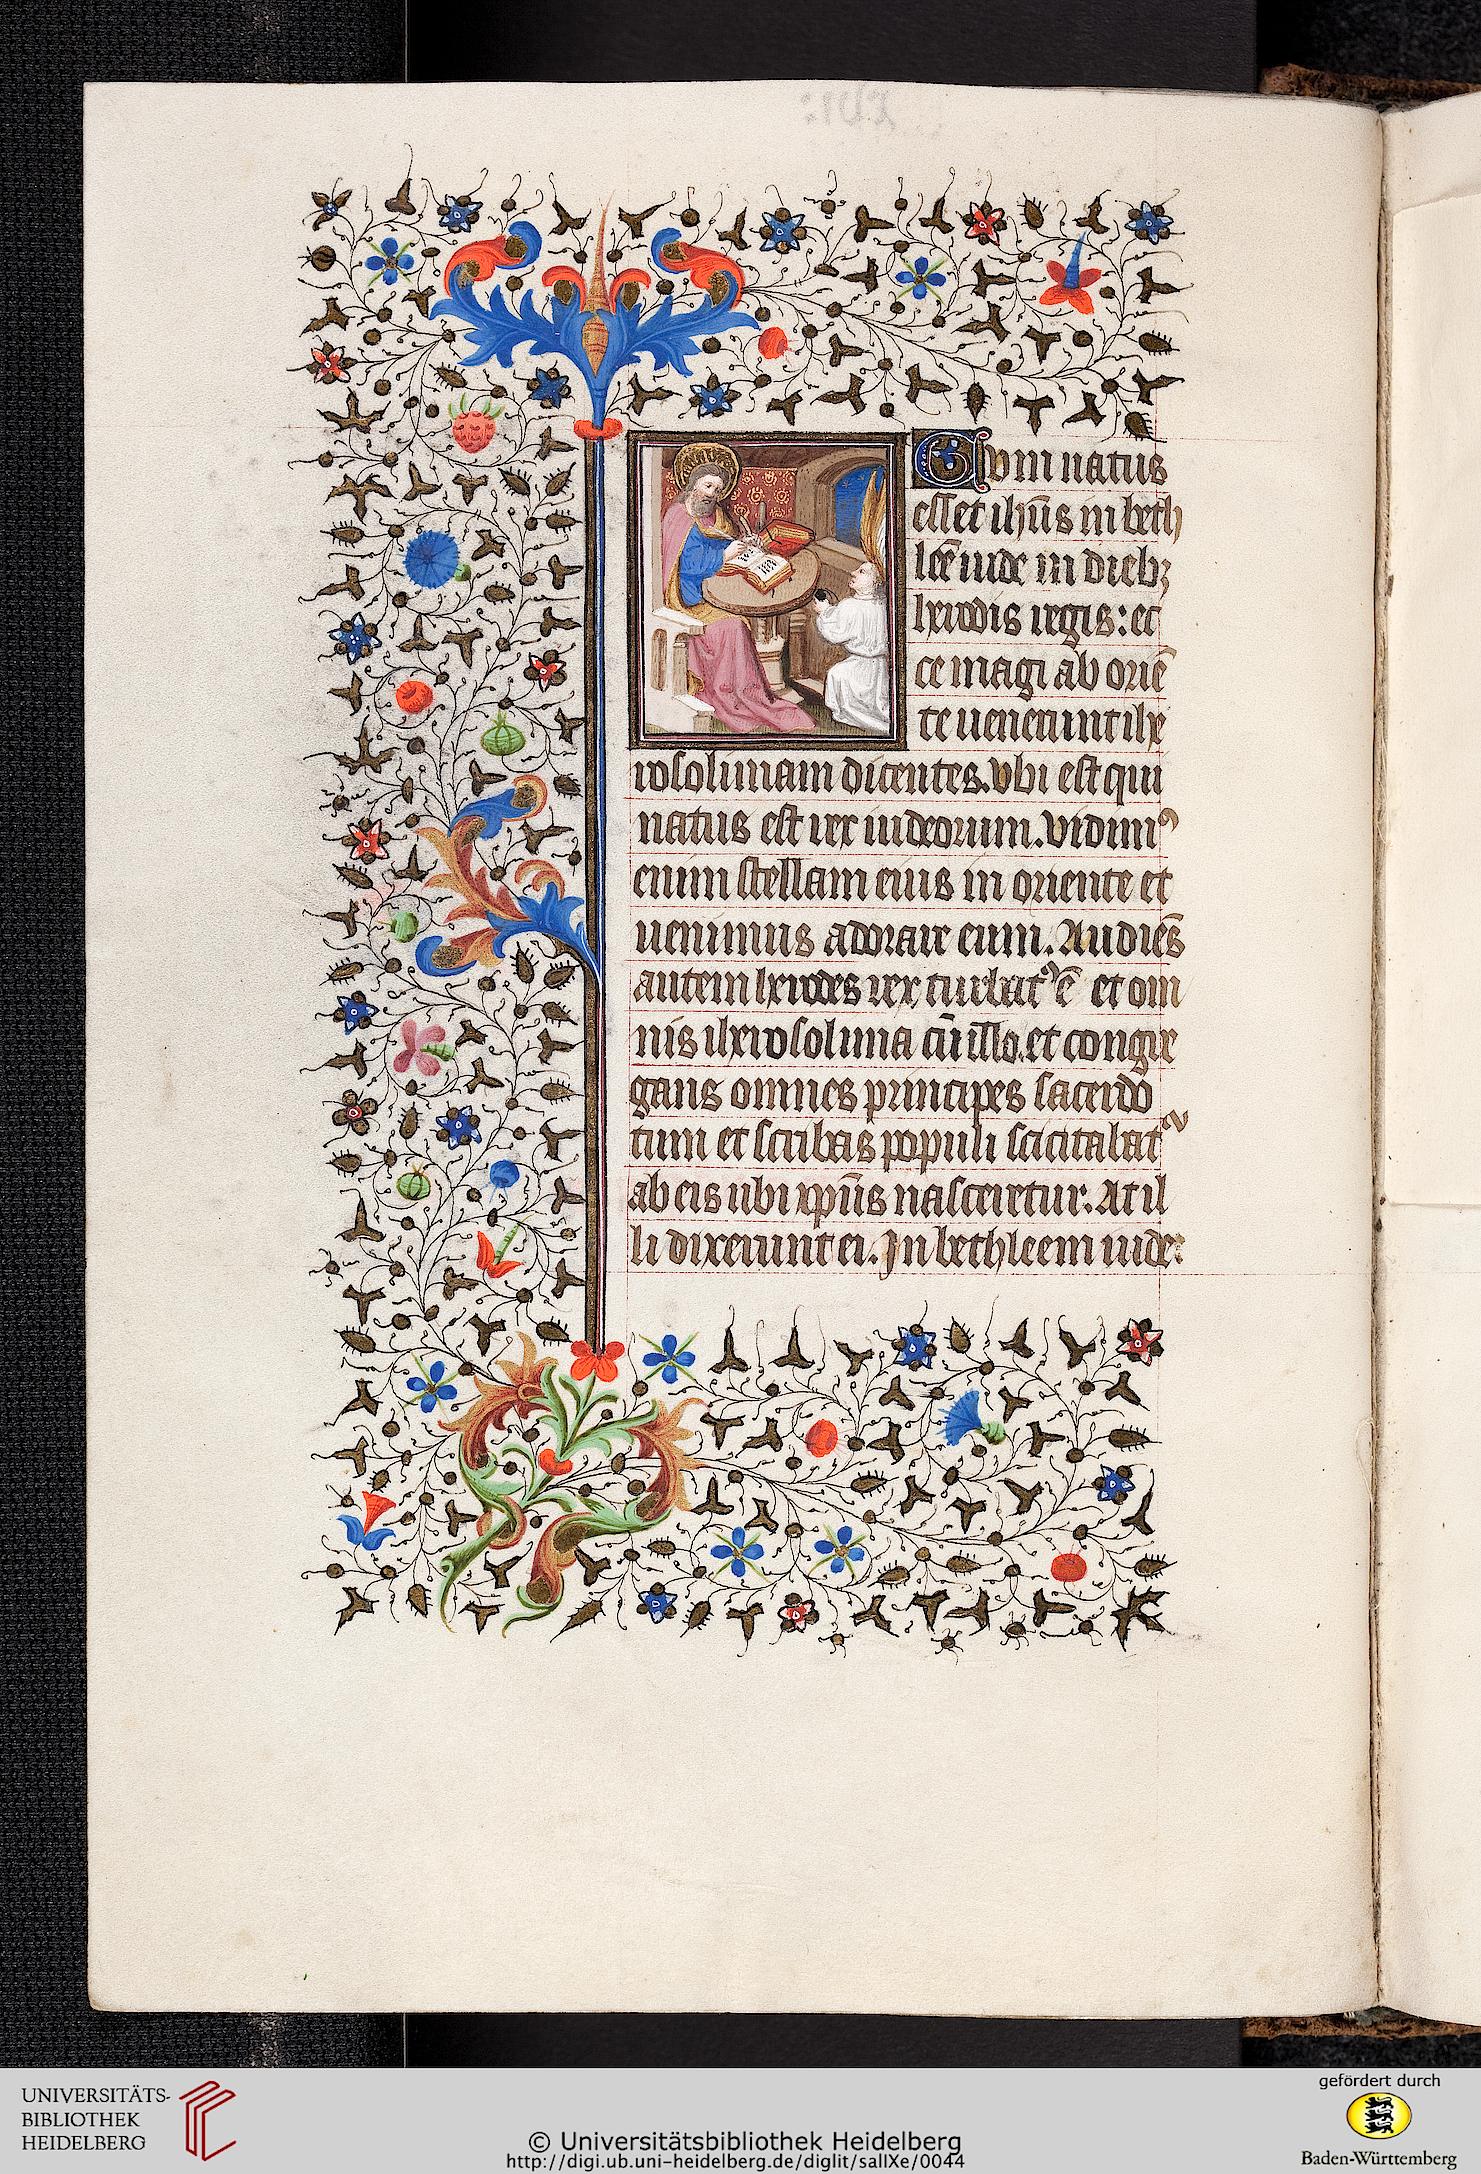 Cum natus
esset ihūs in beth
leē iude in dieb;
herodis regis: ec
ce magi ab oriē
te uenerunt ihe
rosolimam dicentes. Vbi est qui
natus est rex iudeorum. Vidimꝰ
enim stellam eius in oriente et
uenimus adorare eum. Audiēs
autem herodes rex turbatꝰ ē et om
nis iherosolima cū illo. et congre
gans omnes principes sacerdo
tum et scribas populi sciscitabatᷣ
ab eis ubi xpūs nasceretur. At il
li dixerunt ei. In bethleem iude:
UNIVERSITÄTS-
BIBLIOTHEK
HEIDELBERG
© Universitätsbibliothek Heidelberg
http://digi.ub.uni-heidelberg.de/diglit/salIXe/0044
gefördert durch
Baden-Württemberg